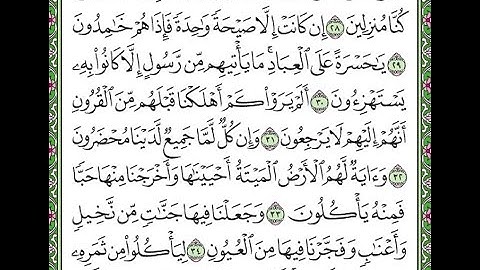 كُنَّا مُنزِلِينَ ٢٨ إِن كَانَتْ إِلَّا صَيْحَةً وَٰحِدَةً فَإِذَا هُمْ خَٰمِدُونَ
٢٩ يَٰحَسْرَةً عَلَى ٱلْعِبَادِ مَا يَأْتِيهِم مِّن رَّسُولٍ إِلَّا كَانُوا۟ بِهِۦ
يَسْتَهْزِءُونَ ٣٠ أَلَمْ يَرَوْا۟ كَمْ أَهْلَكْنَا قَبْلَهُم مِّنَ ٱلْقُرُونِ
أَنَّهُمْ إِلَيْهِمْ لَا يَرْجِعُونَ ٣١ وَإِن كُلٌّ لَّمَّا جَمِيعٌ لَّدَيْنَا مُحْضَرُونَ
٣٢ وَءَايَةٌ لَّهُمُ ٱلْأَرْضُ ٱلْمَيْتَةُ أَحْيَيْنَٰهَا وَأَخْرَجْنَا مِنْهَا حَبًّا
فَمِنْهُ يَأْكُلُونَ ٣٣ وَجَعَلْنَا فِيهَا جَنَّٰتٍ مِّن نَّخِيلٍ
وَأَعْنَٰبٍ وَفَجَّرْنَا فِيهَا مِنَ ٱلْعُيُونِ ٣٤ لِيَأْكُلُوا۟ مِن ثَمَرِهِۦ